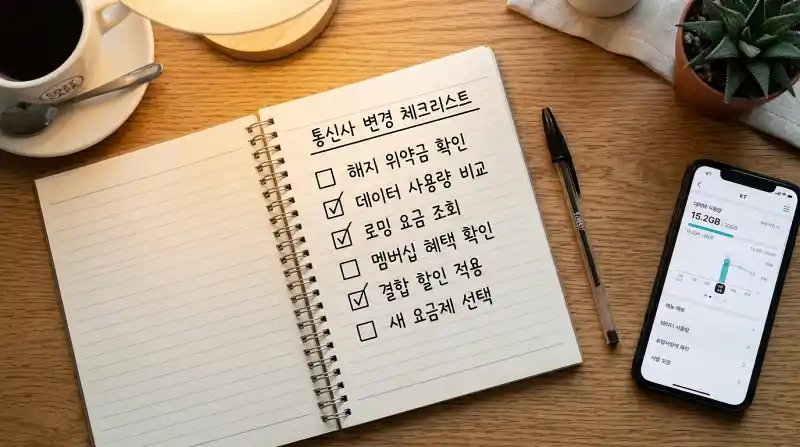 통신사 변경 체크리스트
해지 위약금 확인
데이터 사용량 비교
로밍 요금 조회
멤버십 혜택 확인
결합 할인 적용
새 요금제 선택
KT
데이터 사용량
15.2GB
데이터 사용량